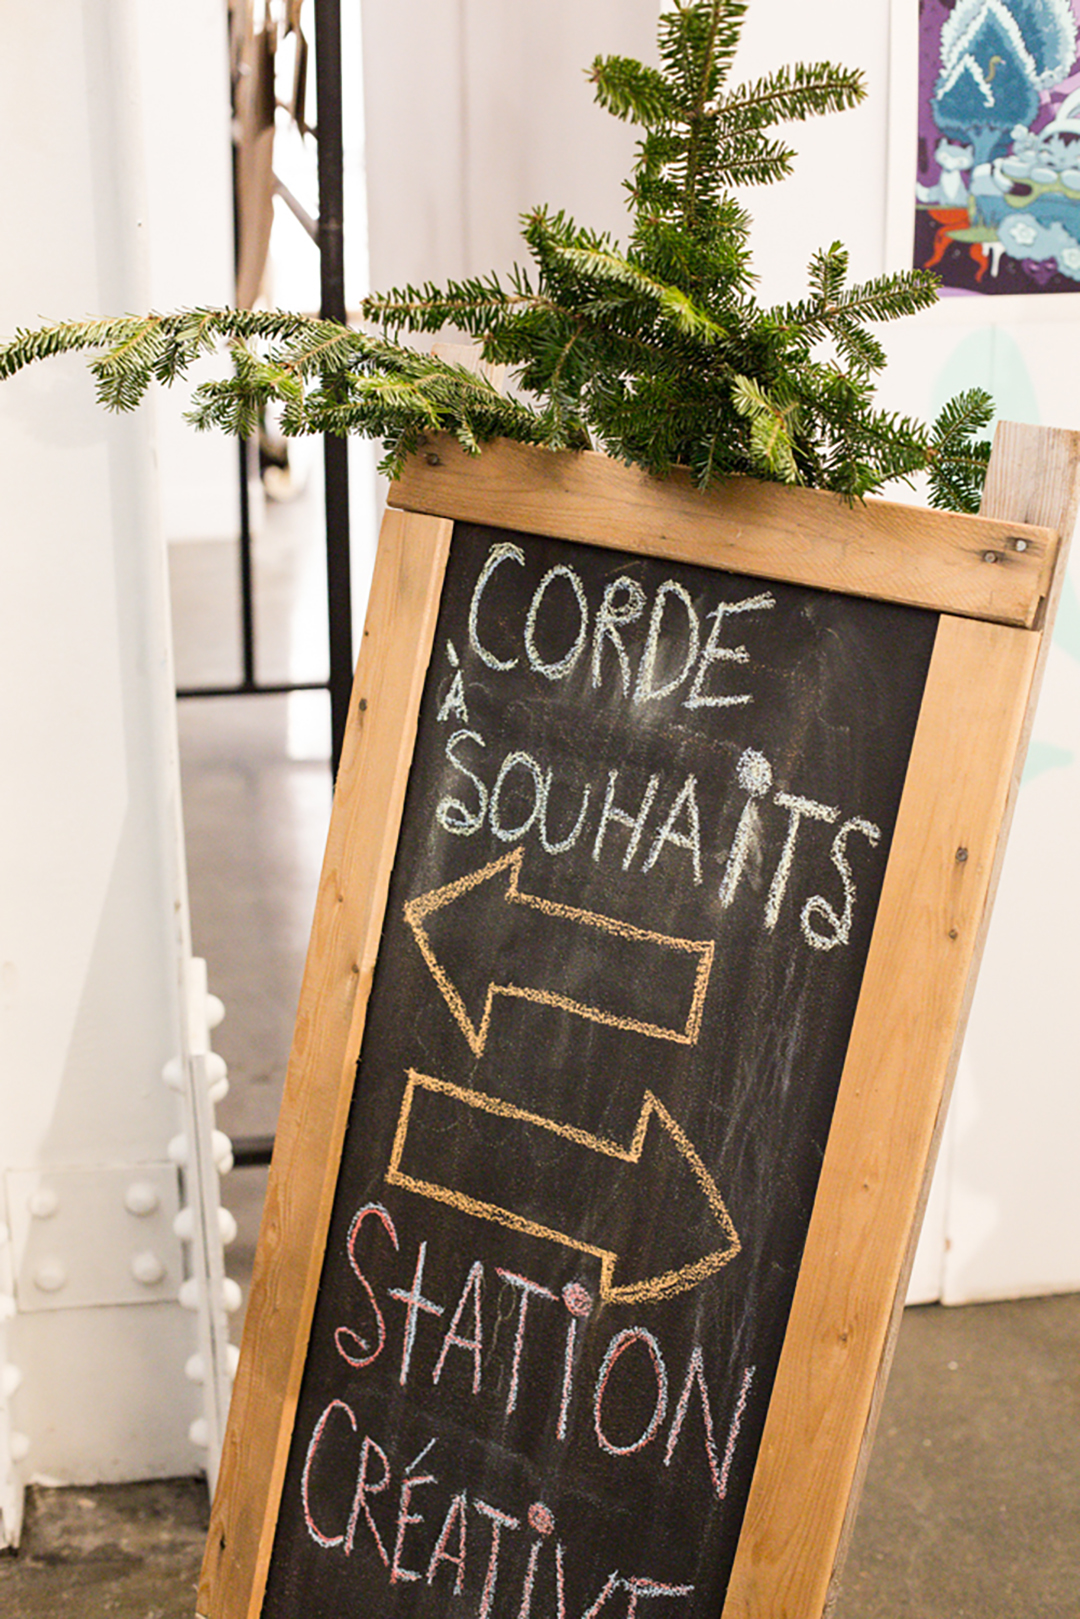 CORDE
À
SOUHAiTS
StATiON
CRÉATiVE